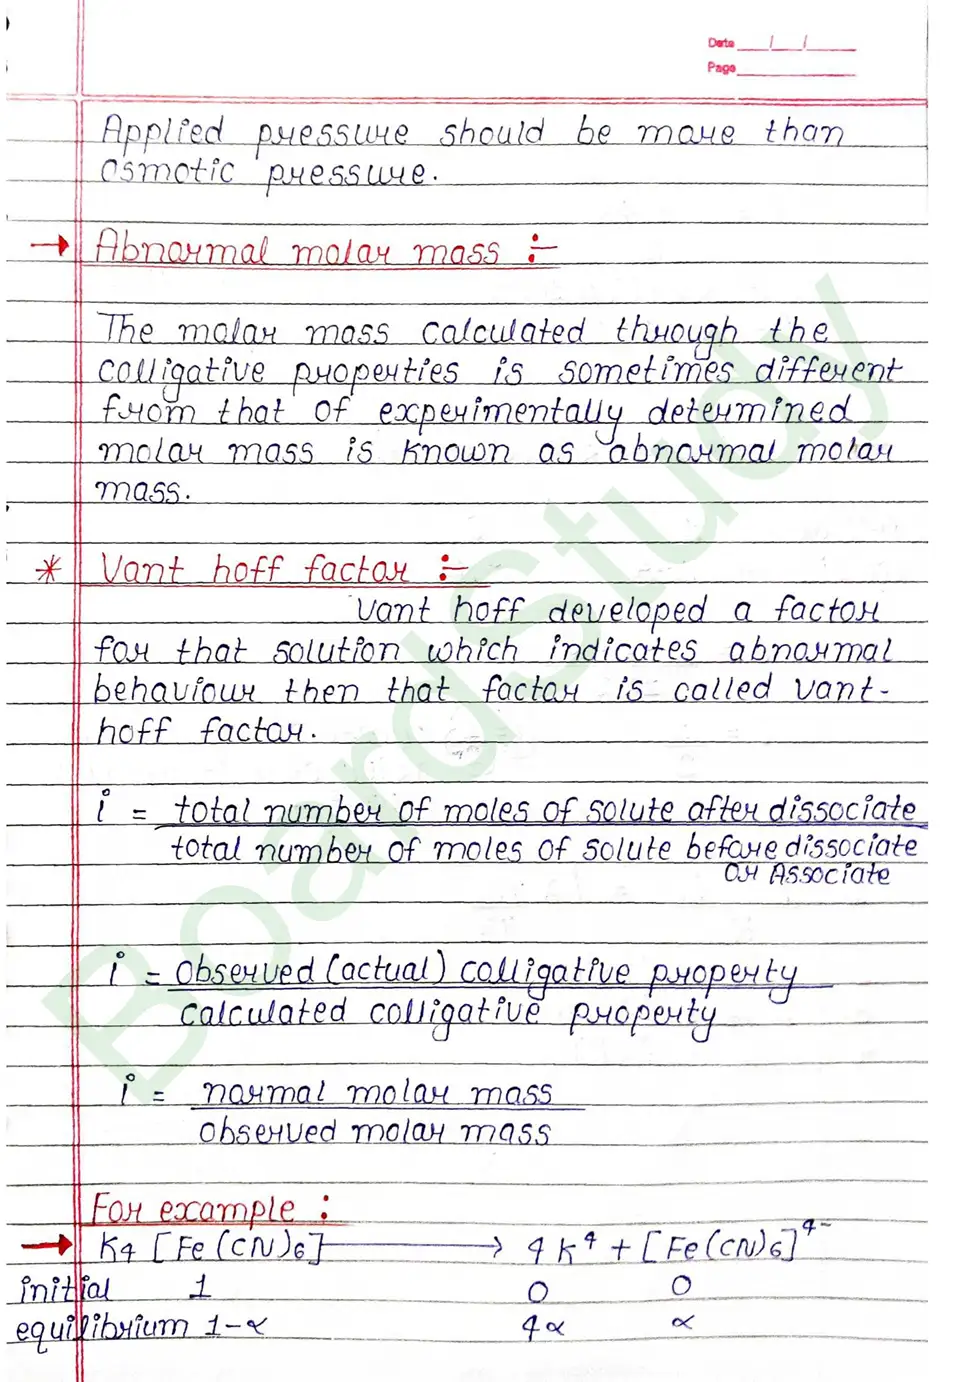 Date ___/___/___
Page
Applied pressure should be more than
osmotic pressure.
→ Abnormal molar mass :-
The molar mass calculated through the
colligative properties is sometimes different
from that of experimentally determined
molar mass is known as abnormal molar
mass.
* Vant hoff factor :-
Vant hoff developed a factor
for that solution which indicates abnormal
behaviour then that factor is called vant-
hoff factor.
i = total number of moles of solute after dissociate
total number of moles of solute before dissociate
or Associate
i = observed (actual) colligative property
calculated colligative property
i = normal molar mass
observed molar mass
For example :
→ K4 [Fe(CN)6] → 4K⁴ + [Fe(CN)6]⁴⁻
initial 1 0 0
equilibrium 1-α 4α α
BoardStudy